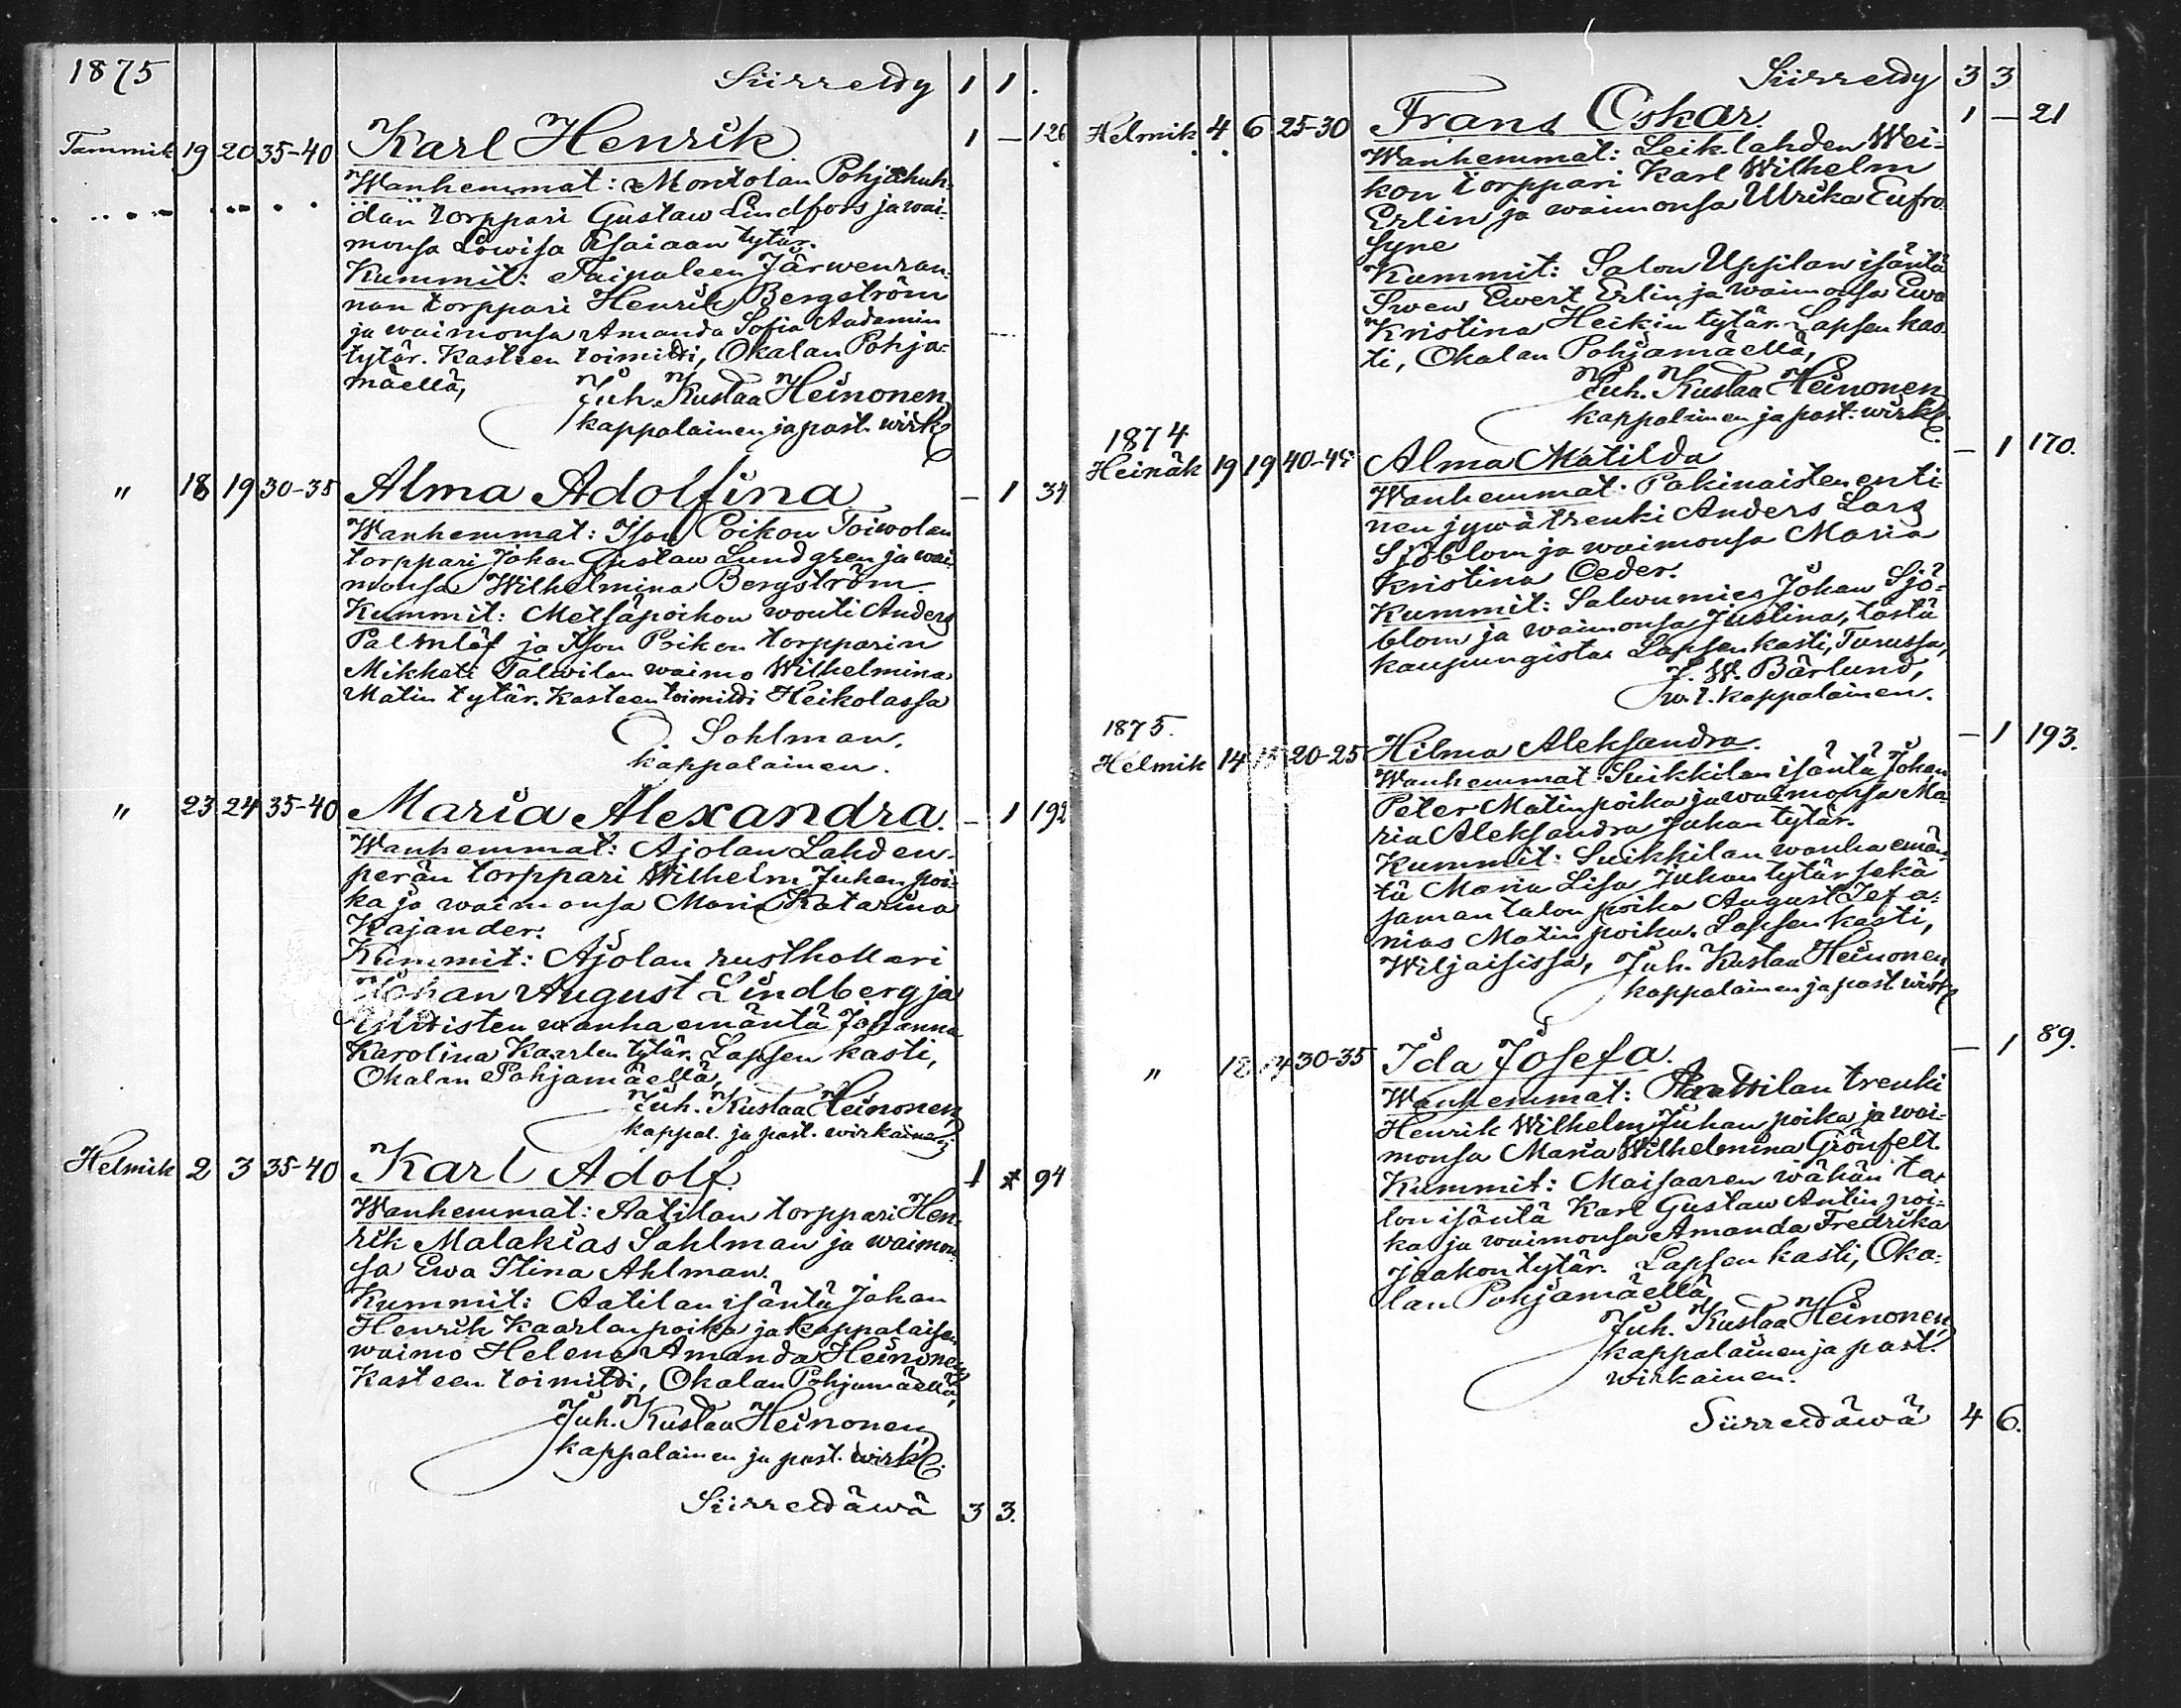 1875
Siirretty 1 1.
Tammik 19 20 35-40 Karl Henrik. 1 — 126
Wanhemmat: Montolan Pohjahuh-
dan torppari Gustaw Lindfors ja wai-
monsa Lowisa Esaiaan tytär.
Kummit: Taipaleen Järwenran-
nan torppari Henrik Bergström
ja waimonsa Amanda Sofia Aadamin
tytär. Kasteen toimitti, Okalan Pohja-
mäellä,
Juh. Kustaa Heinonen
kappalainen ja past. wirk.
" 18 19 30-35 Alma Adolfina — 1 34
Wanhemmat: Ison Poikon Toiwolan
torppari Johan Gustaw Lundgren ja wai-
monsa Wilhelmina Bergström.
Kummit: Metsäpoikon wouti Anders
Palmlöf ja Ison Poikon torpparin
Mikkeli Talwilan waimo Wilhelmina
Matin tytär. Kasteen toimitti Heikolassa
Sohlman.
kappalainen.
" 23 24 35-40 Maria Alexandra. — 1 192
Wanhemmat: Ajolan Lahden-
perän torppari Wilhelm Juhan poi-
ka ja waimonsa Maria Katarina
Kajander.
Kummit: Ajolan rusthollari
Johan August Lindberg ja
wanha emäntä Johanna
Karolina Kaarlen tytär. Lapsen kasti,
Okalan Pohjamäellä,
Juh. Kustaa Heinonen,
kappal. ja past. wirkainen.
Helmik 2 3 35-40 Karl Adolf. 1 — 94
Wanhemmat: Aatilan torppari Hen-
rik Malakias Sahlman ja waimon-
sa Ewa Stina Ahlman.
Kummit: Aatilan isäntä Johan
Henrik Kaarlon poika ja kappalaisen
waimo Helena Amanda Heinonen
Kasteen toimitti, Okalan Pohjamäellä,
Juh. Kustaa Heinonen,
kappalainen ja past. wirk.
Siirrettäwä 3 3.
Siirretty 3 3
Helmik 4 6 25-30 Frans Oskar 1 — 21
Wanhemmat: Leiklahden Wei-
kon torppari Karl Wilhelm
Erlin ja waimonsa Ulrika Eufro-
syne
Kummit: Salon Uppilan isäntä
Swen Ewert Erlin ja waimonsa Ewa
Kristina Heikin tytär. Lapsen kas-
ti, Okalan Pohjamäellä,
Juh. Kustaa Heinonen
kappalainen ja past. wirk.
1874
Heinäk 19 19 40-45 Alma Matilda — 1 170.
Wanhemmat: Pakinaisten enti-
nen jywätrenki Anders Lars
Sjöblom ja waimonsa Maria
Kristina Ceder.
Kummit: Salwumies Johan Sjö-
blom ja waimonsa Justina, tästä
kaupungista. Lapsen kasti, Turussa,
J. W. Bärlund,
w.t. kappalainen.
1875.
Helmik 14 15 20-25 Hilma Aleksandra. — 1 193.
Wanhemmat: Suikkilan isäntä Johan
Peter Matin poika ja waimonsa Ma-
ria Aleksandra Juhan tytär.
Kummit: Suikkilan wanha emän-
tä Maria Lisa Juhan tytär sekä
saman talon poika August Jefa-
nias Matin poika. Lapsen kasti,
Wiljaisissa, Juh. Kustaa Heinonen
kappalainen ja past. wirk.
" 12 14 30-35 Ida Josefa. — 1 89.
Wanhemmat: trenki
Henrik Wilhelm Juhan poika ja wai-
monsa Maria Wilhelmina Grönfelt.
Kummit: Maisaaren wähän ta-
lon isäntä Karl Gustaw Antin poi-
ka ja waimonsa Amanda Fredrika
Jaakon tytär. Lapsen kasti, Oka-
lan Pohjamäellä,
Juh. Kustaa Heinonen,
kappalainen ja past.
wirkainen.
Siirrettäwä 4 6.